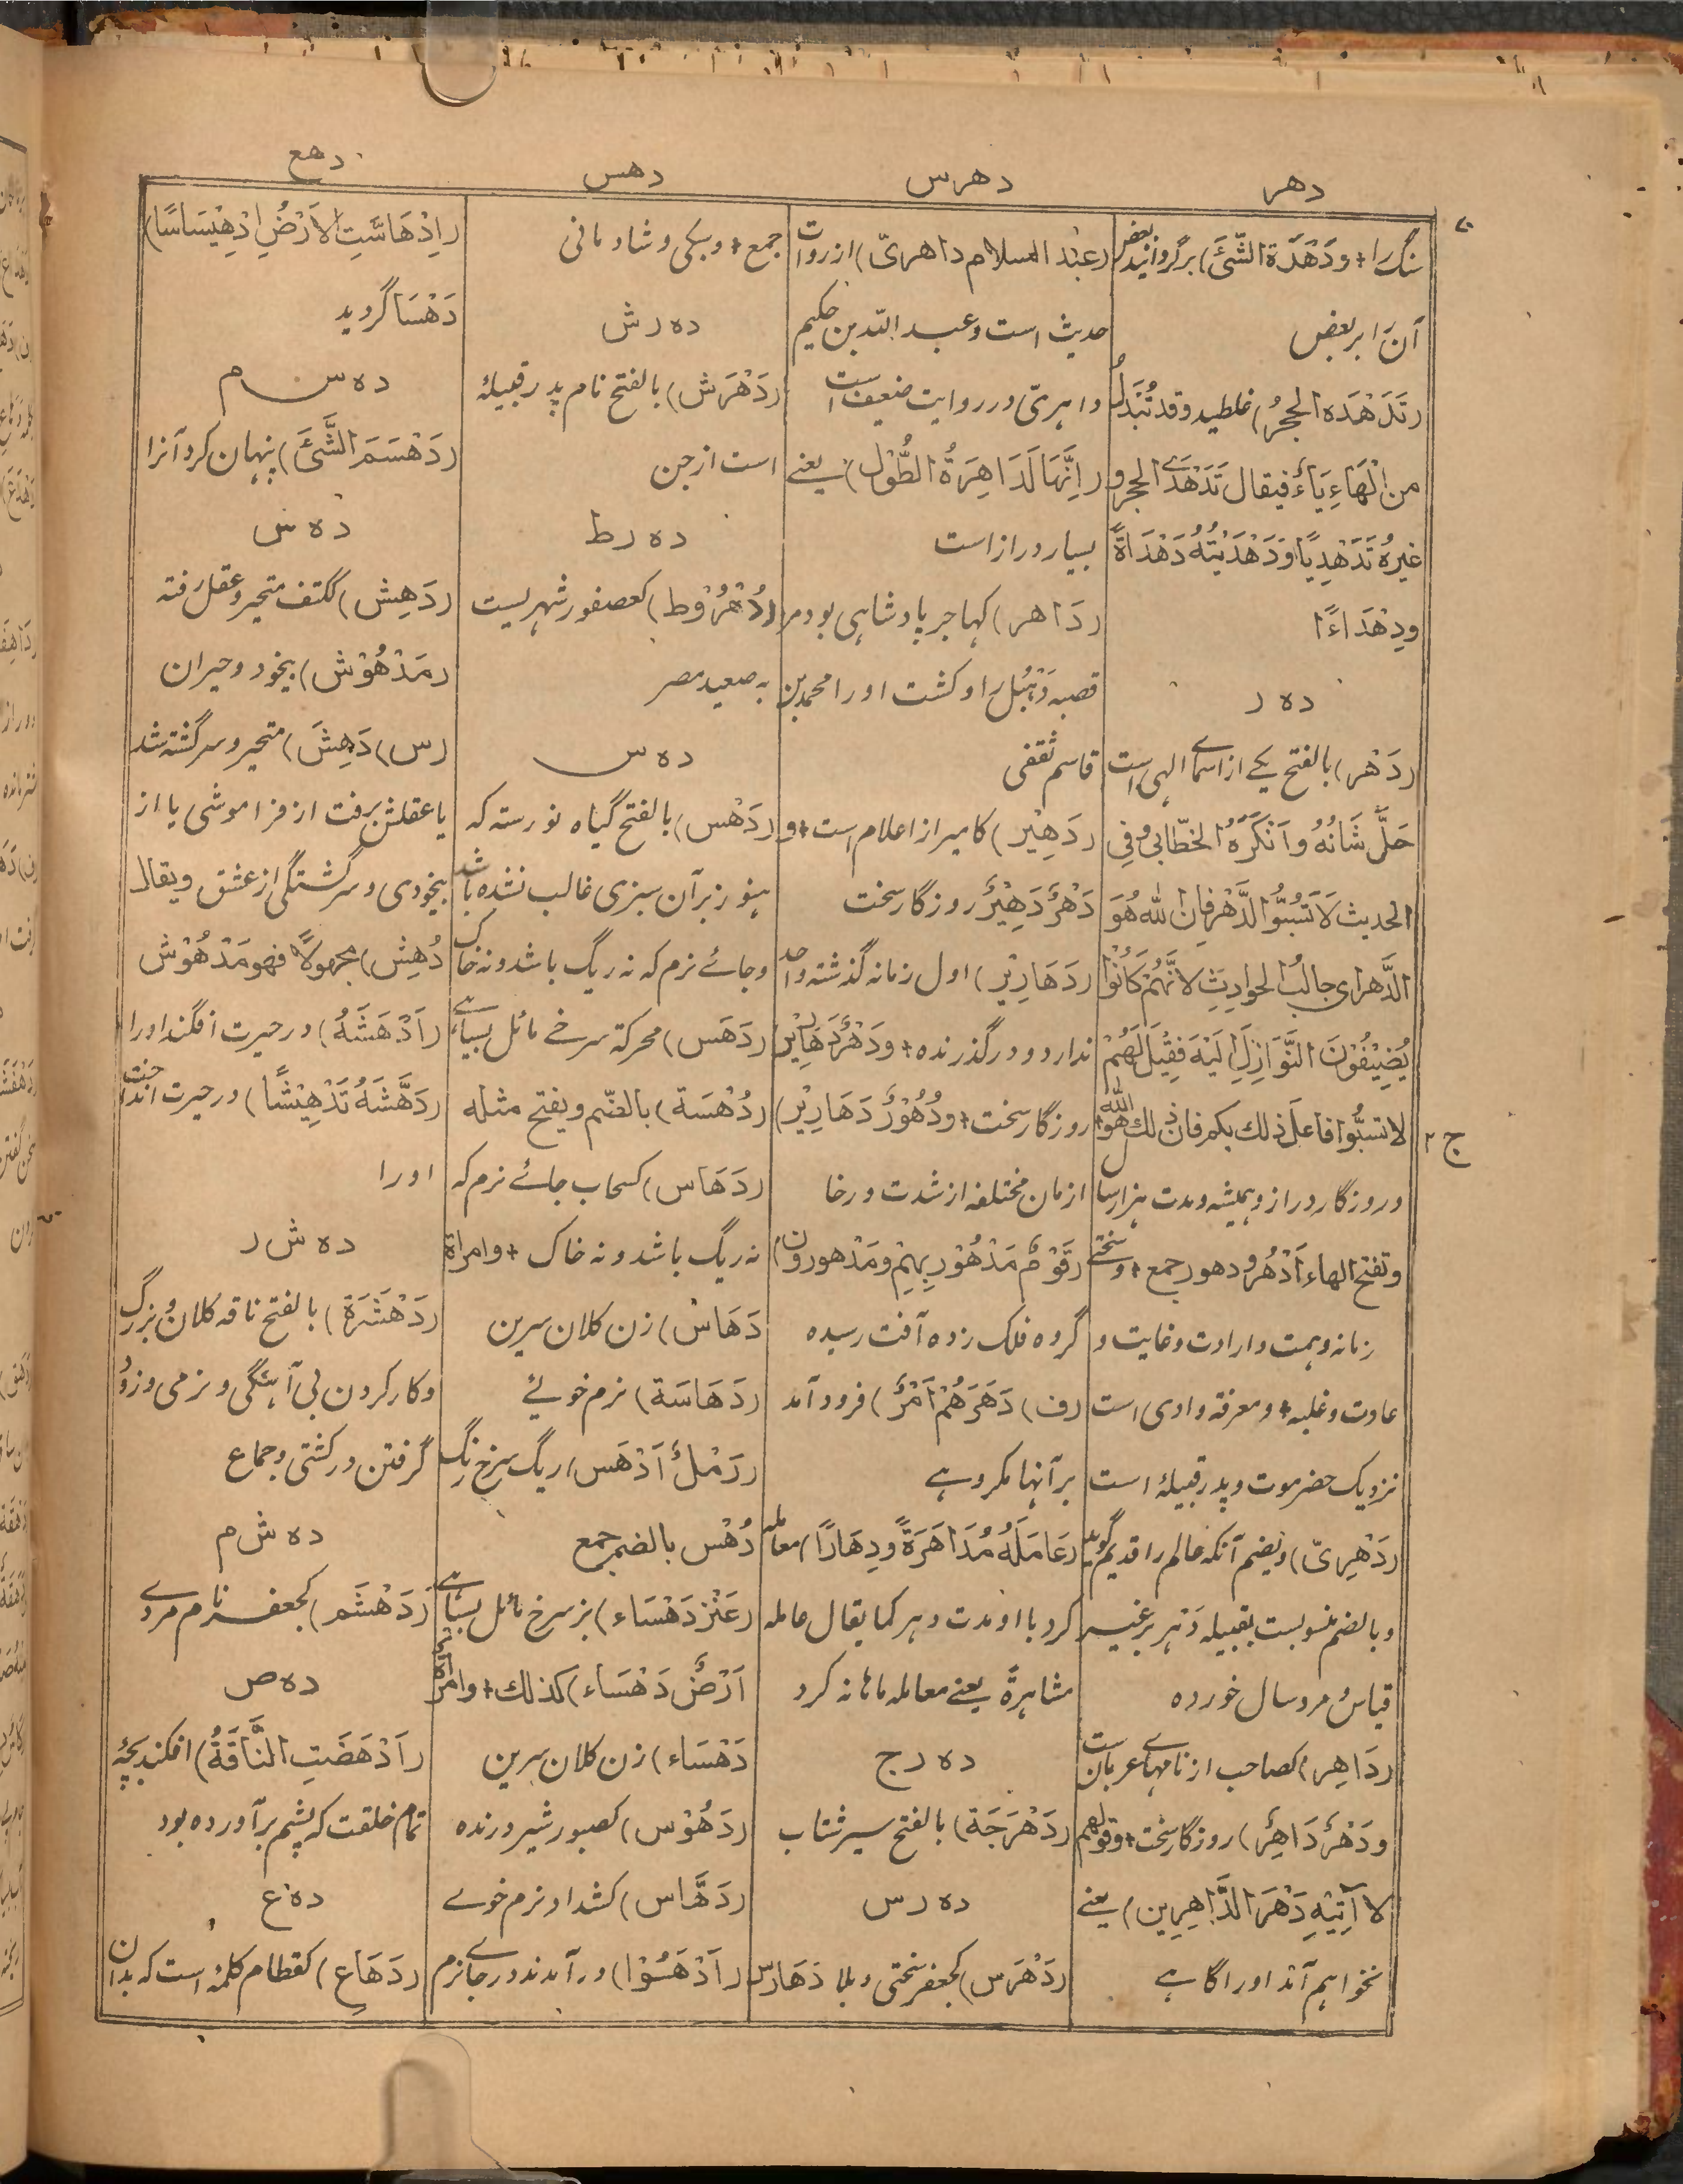 دهر
دهرس
دهس
دهع
سنگ را + ودَهْدَهَ الشَّئَ) برگردانید بعض
آن را بر بعض
(تَدَهْدَه الحجرُ) غلطید وقد تُبْدَلُ
من الْهَاءِ یَاءً فیقال تَدَهْدَی الحجر و
غیرُهٗ تَدَهْدِیًا ودَهْدَیْتُهٗ دَهْدَاةً
ودِهْدَاءًا
ده ر
(دَهْر) بالفتح یکے از اسمائے الہی است
جَلَّ شَانُهٗ وَاَنْکَرَهُ الخطّابی وفِی
الحدیث لَا تَسُبُّوا الدَّهْرَ فَاِنَّ اللّٰهَ هُوَ
الدَّهر ای جالبُ الحوادِثِ لاَنَّهُمْ کَانُوْا
یُضِیْفُوْنَ النَّوَازِلَ اِلَیْهَ فَقِیْلَ لَهُمْ
لا تسبُّوا فاعلَ ذلك بكم فان ذلك هو الله
وروزگار دراز وہمیشہ ومدت ہزار سال
وتفتح الهاء اَدْهُر و دهور جمع + وسختی
زمانہ وہمت وارادت وغایت و
عادت وغلبہ + ومعرفہ وادی است
نزدیک حضرموت وپدر قبیلۂ است
(دَهْرِیّ) ویضم آنکہ عالم را قدیم گوید
وبالضم منسوبست بقبیلہ دَہر بر غیر
قیاس ومرد سال خوردہ
(دَاهِر) کصاحب از نامہائے عربان ست
ودَهْرٌ دَاهِرٌ) روزگار سخت + وقولهم
لا آتِیْهِ دَهْرَ الدَّاهِرِین) یعنے
نخواہم آمد اورا گاہے
(عبْد السلام داهریّ) از روات
حدیث است وعبد اللہ بن حکیم
داہری ودر روایت ضعیف است
(اِنَّهَا لَدَاهِرَةُ الطُّوْلِ) یعنے
بسیار دراز است
(دَاهر) کہاجر پادشاہی بود مر
قصبہ دَیْبُل را وکشت اورا محمد بن
قاسم ثقفی
(دَهِیْر) کامیر از اعلام است + و
دَهْرٌ دَهِیْرٌ روزگار سخت
(دَهَارِیْر) اول زمانہ گذشتہ واحد
ندارد ودر گذرندہ + ودَهْرٌ دَهَارِیْر
روزگار سخت + ودُهُوْرٌ دَهَارِیْر)
ازمان مختلفہ از شدت ورخا
(قَوْمٌ مَدْهُوْرٌ بِهِمْ ومَدْهورون)
گروہ فلک زدہ آفت رسیدہ
(ف) دَهَرَهُمْ اَمْرٌ) فرود آمد
بر آنہا مکروہے
(عَامَلَهٗ مُدَاهَرَةً ودِهَارًا) معاملہ
کرد با او مدت دہر کما یقال عاملہ
مشاہرۃً یعنے معاملہ ماہانہ کرد
ده رج
(دَهْرَجَة) بالفتح سیر شتاب
ده رس
(دَهْرَس) کجعفر سختی وبلا دَهَارِس
جمع + وسبکی وشادمانی
ده رش
(دَهْرَش) بالفتح نام پدر قبیلۂ
است از جن
ده رط
(دُهْرُوْط) کعصفور شہریست
بہ صعید مصر
ده س
(دَهْس) بالفتح گیاہ نورستہ کہ
ہنوز بر آن سبزی غالب نشدہ باشد
وجائے نرم کہ نہ ریگ باشد ونہ خاک
(دَهَس) محرکۃ سرخے مائل بسیاہے
(دُهْسَة) بالضّم ویفتح مثلہ
(دَهَاس) کسحاب جائے نرم کہ
نہ ریگ باشد ونہ خاک + وامرأة
دَهَاس) زن کلان سرین
(دَهَاسَة) نرم خوئے
(رَمْلٌ اَدْهَس) ریگ سرخ رنگ
دُهْس بالضم جمع
(عَنْز دَهْسَاء) بز سرخ مائل بسیاہے
اَرْضٌ دَهْسَاء) کذلك + وامرأة
دَهْسَاء) زن کلان سرین
(دَهُوْس) کصبور شیر درندہ
(دَهَّاس) کشداد نرم خوے
(اَدْهَسُوْا) در آمدند در جائے نرم
(اِدْهَاسَّتِ الاَرْضُ اِدْهِیْسَاسًا)
دَهْسَا گردید
ده س م
(دَهْسَمَ الشَّئَ) پنہان کرد آنرا
ده ش
(دَهِش) ککتف متحیر وعقل رفتہ
(مَدْهُوْش) بیخود وحیران
(س) دَهِشَ) متحیر وسرگشتہ شد
یا عقلش برفت از فراموشی یا از
بیخودی وسرگشتگی از عشق ویقال
دُهِش) مجهولاً فهو مَدْهُوْش
(اَدْهَشَهٗ) در حیرت افگند اورا
(دَهَّشَهٗ تَدْهِیْشًا) در حیرت انداخت
اورا
ده ش ر
(دَهْشَرَة) بالفتح ناقہ کلان وبزرگ
وکار کردن بی آہستگی ونرمی وزود
گرفتن در کشتی وجماع
ده ش م
(دَهْشَم) کجعفر نام مردے
ده ص
(اَدْهَصَتِ النَّاقَةُ) افکند بچۂ
تمام خلقت کہ پشم بر آوردہ بود
ده ع
(دَهَاعِ) کقطام کلمہ است کہ بدان
ج ۲